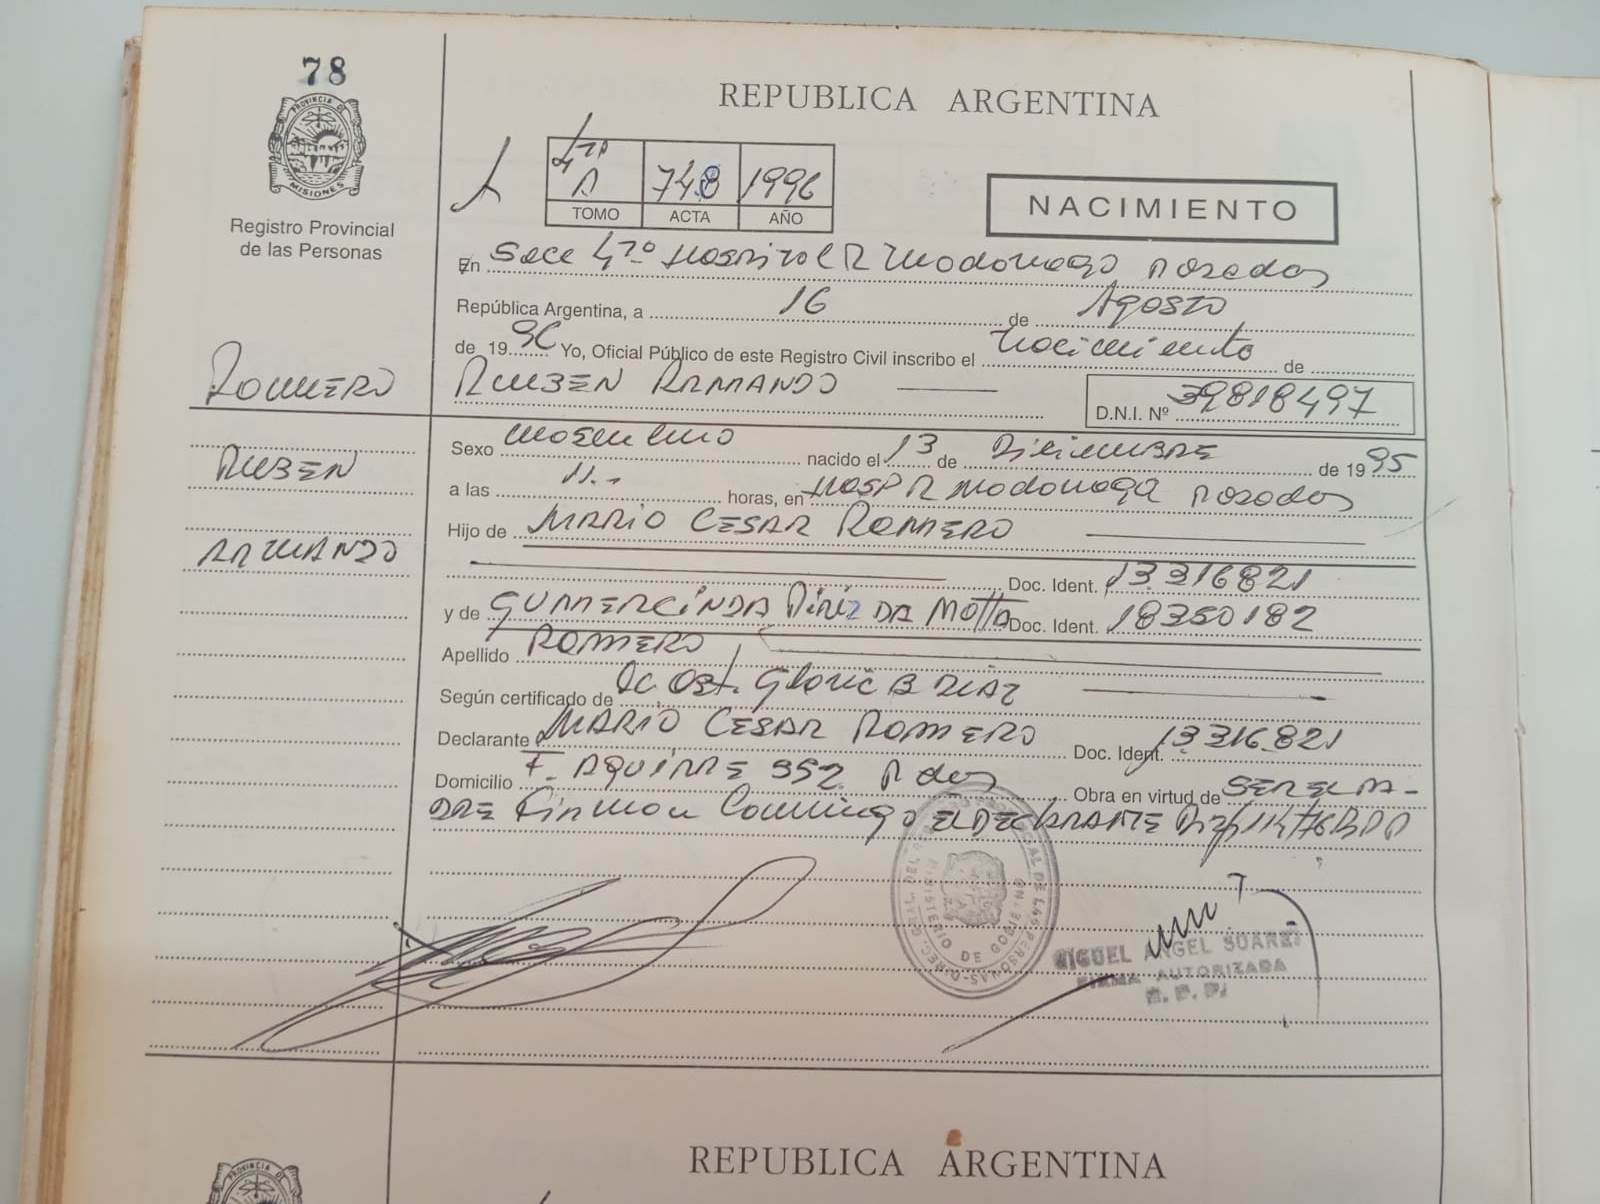 78
PROVINCIA DE
MISIONES
Registro Provincial
de las Personas
REPUBLICA ARGENTINA
4ta A 748 1996
TOMO ACTA AÑO
NACIMIENTO
En Secc 4ta Hospital R Madariaga Posadas
República Argentina, a 16 de Agosto
de 1996 Yo, Oficial Público de este Registro Civil inscribo el nacimiento de
ROMERO
RUBEN ARMANDO
D.N.I. Nº 39818497
RUBEN
ARMANDO
Sexo masculino nacido el 13 de Diciembre de 1995
a las 11.. horas, en Hosp R Madariaga Posadas
Hijo de MARIO CESAR ROMERO
Doc. Ident. 13316821
y de GUMERCINDA DINIZ DA MOTTA Doc. Ident. 18350182
Apellido ROMERO
Según certificado de Ost. Gloria B DIAZ
Declarante MARIO CESAR ROMERO Doc. Ident. 13316821
Domicilio F. AGUIRRE 352 Pdas Obra en virtud de SER EL PA-
DRE Firman Conmigo EL DECLARANTE
MINISTERIO DE GOBIERNO
MIGUEL ANGEL SUAREZ
FIRMA AUTORIZADA
R. P. P.
PROVINCIA DE
REPUBLICA ARGENTINA